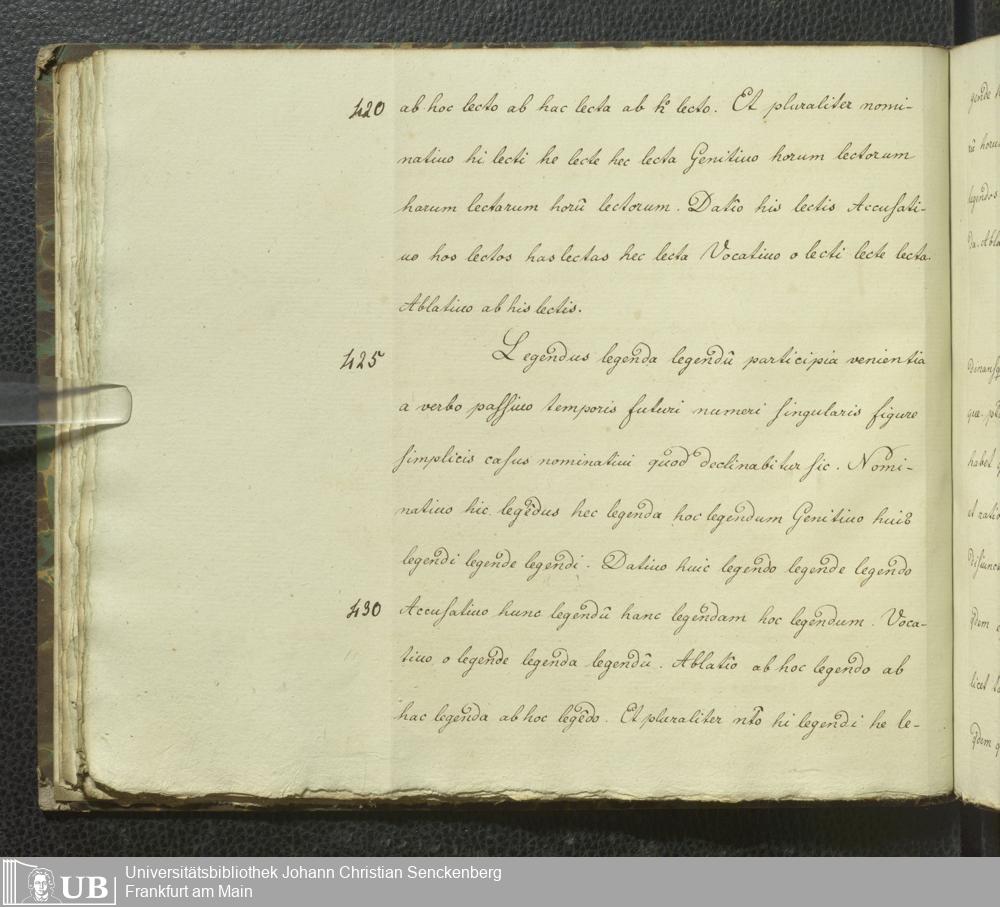 420 ab hoc lecto ab hac lecta ab hͦ lecto. Et pluraliter nomi-
natiuo hi lecti he lecte hec lecta Genitiuo horum lectorum
harum lectarum horū lectorum. Datīo his lectis Accuſati-
uo hos lectos has lectas hec lecta Vocatiuo o lecti lecte lecta.
Ablatiuo ab his lectis.
425 Legendus legenda legendū participia venientia
a verbo paſſiuo temporis futuri numeri ſingularis figure
ſimplicis caſus nominatiui quod declinabitur ſic. Nomi-
natiuo hic legēdus hec legenda hoc legendum Genitiuo huiꝰ
legendi legende legendi. Datiuo huic legendo legende legendo
430 Accuſatiuo hunc legendū hanc legendam hoc legendum. Voca-
tiuo o legende legenda legendū. Ablatīo ab hoc legendo ab
hac legenda ab hoc legēdo. Et pluraliter nt̄o hi legendi he le-
gende
horu
legendos
Universitätsbibliothek Johann Christian Senckenberg
Frankfurt am Main
UB